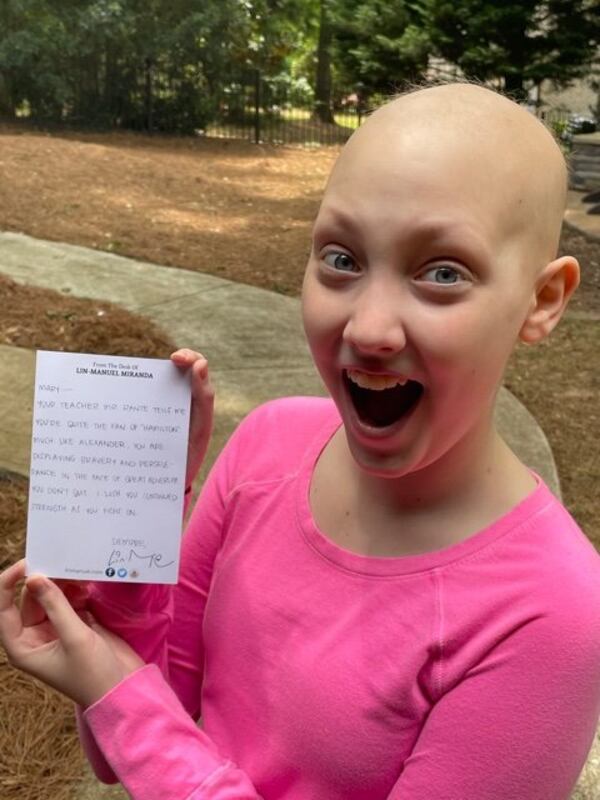 From The Desk Of
LIN-MANUEL MIRANDA
MARY —
YOUR TEACHER MR. DANTE TELLS ME
YOU'RE QUITE THE FAN OF "HAMILTON".
MUCH LIKE ALEXANDER, YOU ARE
DISPLAYING BRAVERY AND PERSEVE-
RANCE IN THE FACE OF GREAT ADVERSITY.
YOU DON'T QUIT. I WISH YOU CONTINUED
STRENGTH AS YOU FIGHT ON.
SIEMPRE,
linmanuel.com